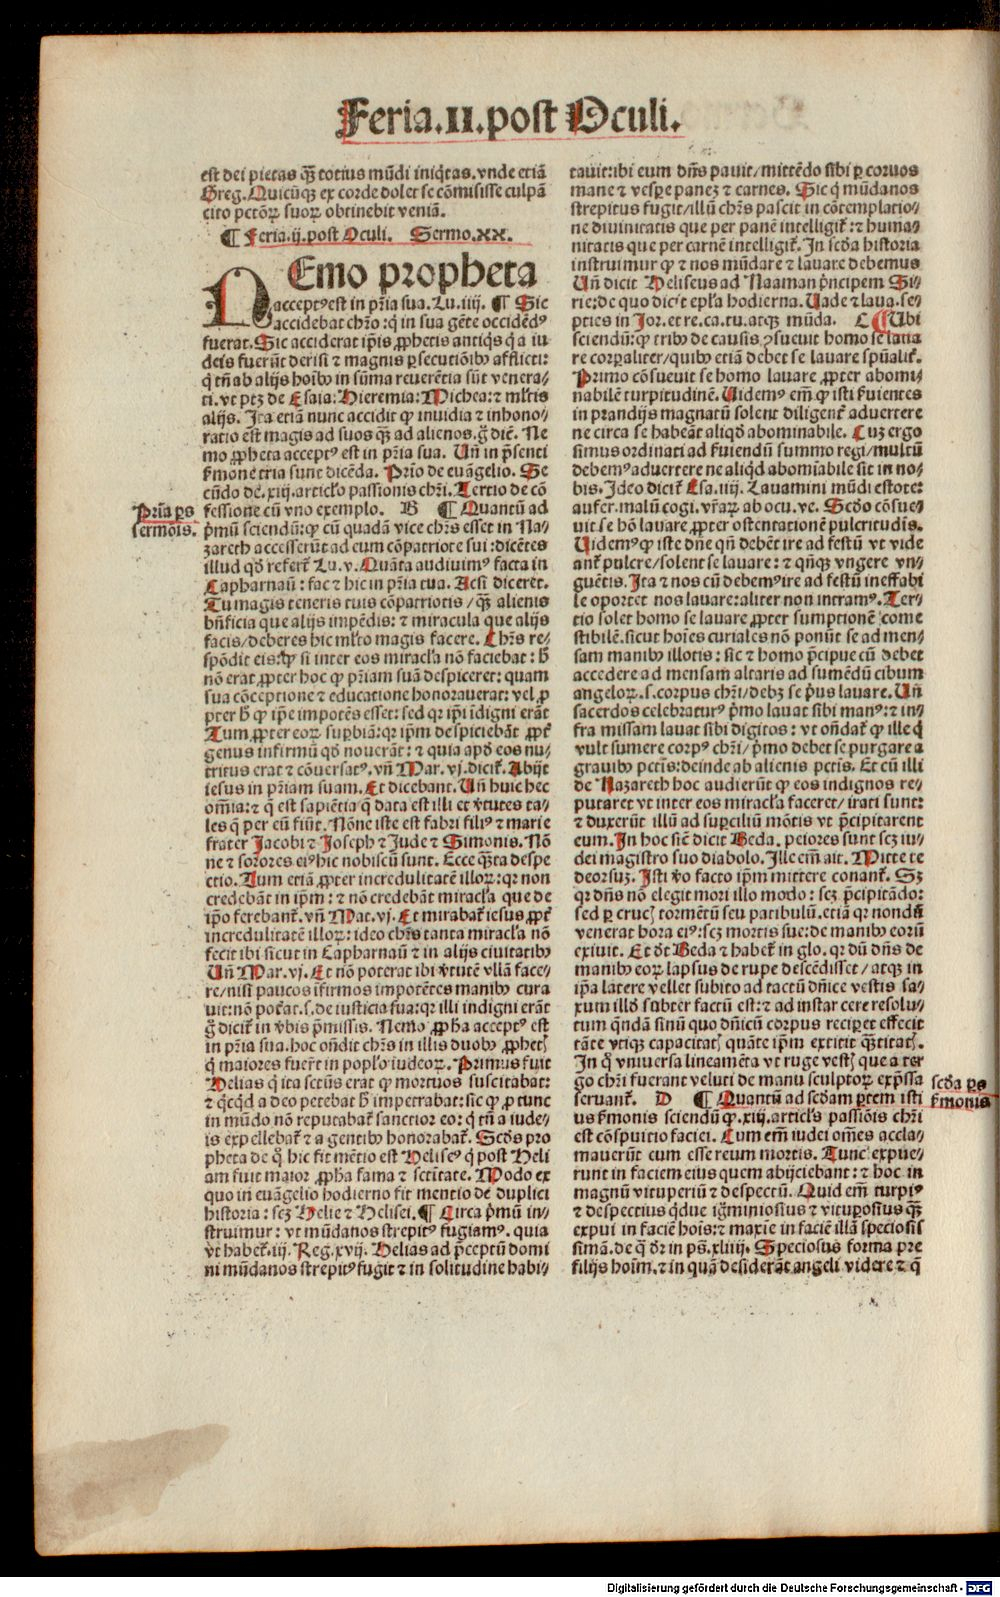 Feria.II.post Oculi.
est dei pietas qȝ̄ totius mūdi iniq̇tas.vnde etiā
Greg. Quicūqȝ ex corde dolet se cōmisisse culpā
cito pctōꝝ suoꝝ obtinebit veniā.
¶ Feria.ij.post Oculi. Sermo.xx.
NEmo propheta
acceptꝰ est in pr̄ia sua. Lu.iiij. ¶ Sic
accidebat chr̄o: q̇ in sua gēte occidēdꝰ
fuerat. Sic acciderat ip̄is ꝓphetis antiq̇s q̇ a iu
deis fuerūt derisi ⁊ magnis ꝑsecutiōibꝰ afflicti:
q̇ tn̄ ab alijs hoībꝰ in sūma reuerētia sūt venera⸗
ti. vt ptȝ de Esaia: Hieremia: Michea: ⁊ ml̄tis
alijs. Ita etiā nunc accidit ꝙ inuidia ⁊ inhono⸗
ratio est magis ad suos qȝ̄ ad alienos. g̊ dic̄t. Ne
mo ꝓpheta acceptꝰ est in pr̄ia sua. Vn̄ in p̄senti
ẜmone tria sunt dicēda. Prīo de euāgelio. Se
cūdo de. xiij. articl̄o passionis chr̄i. Tertio de cō
fessione cū vno exemplo. B ¶ Quantū ad
Prīa ꝑs
sermōis.
p̄mū sciendū: ꝙ cū quadā vice chr̄s esset in Na⸗
zareth accesserūt ad eum cōpatriote sui: dicētes
illud qd̄ refert̃ Lu. v. Quāta audiuimꝰ facta in
Capharnaū: fac ⁊ hic in pr̄ia tua. Acsi diceret.
Tu magis teneris tuis cōpatriotis / qȝ̄ alienis
bn̄ficia que alijs impēdis: ⁊ miracula que alijs
facis / deberes hic ml̄to magis facere. Chr̄s re⸗
spōdit eis: ꝙ si inter eos miracl̄a nō faciebat: h̄
nō erat ꝓpter hoc ꝙ pr̄iam suā despiceret: quam
sua cōceptione ⁊ educatione honorauerat: vel ꝓ
pter h̄ ꝙ ip̄e impotēs esset: sed qꝛ ip̄i īdigni erāt
Tum ꝓpter eoꝝ suꝑbiā: qꝛ ip̄m despiciebāt ꝓpt̃
genus infirmū qd̄ nouerāt: ⁊ quia apd̄ eos nu⸗
tritus erat ⁊ cōuersatꝰ. vn̄ Mar. vj. dicit̃. Abijt
iesus in pr̄iam suam. Et dicebant. Vn̄ huic hec
om̄ia: ⁊ q̄ est sapiētia q̄ data est illi et ṽtutes ta⸗
les q̄ per eū fiūt. Nōne iste est fabri filiꝰ ⁊ marie
frater Jacobi ⁊ Joseph ⁊ Jude ⁊ Simonis. Nō
ne ⁊ sorores eiꝰ hic nobiscū sunt. Ecce q̄ta despe
ctio. Tum etiā ꝓpter incredulitatē illoꝝ: qꝛ non
credebāt in ip̄m: ⁊ nō credebāt miracl̄a que de
ip̄o ferebant̃. vn̄ Mat. vj. Et mirabat̃ iesus ꝓpt̃
incredulitatē illoꝝ: ideo chr̄s tanta miracl̄a nō
fecit ibi sicut in Capharnaū ⁊ in alijs ciuitatibꝰ
Vn̄ Mar. vj. Et nō poterat ibi ṽtutē vllā face⸗
re / nisi paucos īfirmos impotētes manibꝰ cura
uit: nō pot̃at. s. de iusticia sua: qꝛ illi indigni erāt
g̊ dicit̃ in ṽbis p̄missis. Nemo ꝓp̄ha acceptꝰ est
in pr̄ia sua. hoc on̄dit chr̄s in illis duobꝰ ꝓphetꝭ
q̇ maiores fuer̄t in popl̄o iudeoꝝ. Primus fuit
Helias q̇ ita sctūs erat ꝙ mortuos suscitabat:
⁊ q̇cq̇d a deo petebat h̄ impetrabat: sic ꝙ ꝓ tunc
in mūdo nō reputabat̃ sanctior eo: q̇ tn̄ a iude⸗
is expellebat̃ ⁊ a gentibꝰ honorabat̃. Scd̄s pro
pheta de q̊ hic fit mētio est Heliseꝰ q̇ post Heli
am fuit maior ꝓp̄ha fama ⁊ sctītate. Modo ex
quo in euāgelio hodierno fit mentio de duplici
historia: scȝ Helie ⁊ Helisei. ¶ Circa p̄mū in⸗
struimur: vt mūdanos strepitꝰ fugiamꝰ. quia
vt habet̃. iij. Reg. xvij. Helias ad p̄ceptū domi
ni mūdanos strepitꝰ fugit ⁊ in solitudine habi⸗
tauit: ibi eum dn̄s pauit / mittēdo sibi ꝑ coruos
mane ⁊ vespe panez ⁊ carnes. Sic q̇ mūdanos
strepitus fugit / illū chr̄s pascit in cōtemplatio⸗
ne diuinitatis que per panē intelligit̃: ⁊ huma⸗
nitatis que per carnē intelligit̃. In scd̄a historia
instruimur ꝙ ⁊ nos mūdare ⁊ lauare debemus
Vn̄ dicit Heliseus ad Naaman p̄ncipem Si⸗
rie: de quo dicit epl̄a hodierna. Vade ⁊ laua. se⸗
pties in Jor. et re. ca. tu. atqȝ mūda. C ¶ Vbi
sciendū: ꝙ tribꝰ de causis ꝯsueuit homo se laua
re corꝑaliter / quibꝰ etiā debet se lauare spūalit̃.
Primo cōsueuit se homo lauare ꝓpter abomi⸗
nabilē turpitudinē. Uidemꝰ em̄ ꝙ isti ẜuientes
in prandijs magnatū solent diligent̃ aduertere
ne circa se habeāt aliqd̄ abominabile. Cuȝ ergo
simus ordinati ad ẜuiendū summo regi / multū
debemꝰ aduertere ne aliq̇d abomīabile sit in no⸗
bis. Ideo dicit̃ Esa. iiij. Lauamini mūdi estote:
aufer. malū cogi. vr̄aꝝ ab ocu. ve. Scd̄o cōsue⸗
uit se hō lauare ꝓpter ostentationē pulcritudīs.
Uidemꝰ ꝙ iste dn̄e qn̄ debēt ire ad festū vt vide
ant̃ pulcre / solent se lauare: ⁊ qn̄qȝ vngere vn⸗
guētis. Ita ⁊ nos cū debemꝰ ire ad festū ineffabi
le oportet nos lauare: aliter non intramꝰ. Ter⸗
tio solet homo se lauare ꝓpter sumptionē come
stibilē. sicut hoīes curiales nō ponūt se ad men⸗
sam manibꝰ illotis: sic ⁊ homo p̄cipue cū debet
accedere ad mensam altaris ad sumēdū cibum
angeloꝝ. s. corpus chr̄i / debȝ se p̄us lauare. Un̄
sacerdos celebraturꝰ p̄mo lauat sibi manꝰ: ⁊ in⸗
fra missam lauat sibi digitos: vt on̄dat̃ ꝙ ille q̇
vult sumere corpꝰ chr̄i / p̄mo debet se purgare a
grauibꝰ pctīs: deinde ab alienis pctīs. Et cū illi
de Nazareth hoc audierūt ꝙ eos indignos re⸗
putaret vt inter eos miracl̄a faceret / irati sunt:
⁊ duxerūt illū ad suꝑciliū mōtis vt p̄cipitarent
eum. In hoc sic̄ dicit Beda. peiores sunt scȝ iu⸗
dei magistro suo diabolo. Ille em̄ ait. Mitte te
deorsuȝ. Isti ṽo facto ip̄m mittere conant̃. Sȝ
qꝛ dn̄s nō elegit mori illo modo: scȝ p̄cipitādo:
sed ꝑ crucꝭ tormētū seu patibulū. etiā qꝛ nondū
venerat hora eiꝰ: scȝ mortis sue: de manibꝰ eorū
exiuit. Et dt̄ Beda ⁊ habet̃ in glo. qꝛ dū dn̄s de
manibꝰ eoꝝ lapsus de rupe descēdisset / atqȝ in
ip̄a latere vellet subito ad tactū dn̄ice vestis sa⸗
xum illd̄ subter factū est: ⁊ ad instar cere resolu⸗
tum q̄ndā sinū quo dn̄icū corpus reciꝑet effecit
tāte vtiqȝ capacitatꝭ quāte ip̄m extitit q̄titatꝭ.
In q̊ vniuersa lineamēta vt ruge vestꝭ que a ter
go chr̄i fuerant veluti de manu sculptoꝝ exp̄ssa
seruant̃. D ¶ Quantū ad scd̄am ꝑtem isti
scd̄a ꝑs
ẜmonis
us ẜmonis sciendū ꝙ. xiij. articl̄s passiōis chr̄i
est cōspuitio faciei. Cum em̄ iudei om̄es accla⸗
mauerūt eum esse reum mortis. Tunc expue⸗
runt in faciem eius quem abijciebant: ⁊ hoc in
magnū vituperiū ⁊ despectū. Quid em̄ turpiꝰ
⁊ despectius q̇due ig̃miniosius ⁊ vituꝑosius qȝ̄
expui in faciē hoīs: ⁊ maxīe in faciē illā speciosis
simā. de q̄ dr̄ in ps̄. xliiij. Speciosus forma pre
filijs hoīm. ⁊ in quā desiderāt angeli videre ⁊ q̄
Digitalisierung gefördert durch die Deutsche Forschungsgemeinschaft - DFG